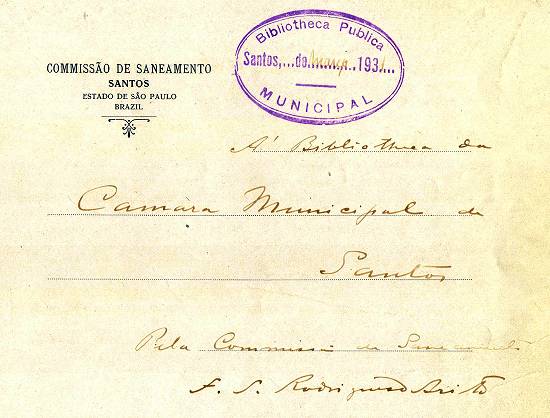 COMMISSÃO DE SANEAMENTO
SANTOS
ESTADO DE SÃO PAULO
BRAZIL
Bibliotheca Publica
Santos,...de março 1931
MUNICIPAL
A' Bibliotheca da
Camara Municipal de
Santos
Pela Commissão de Saneamento
F. S. Rodrigues de Brito